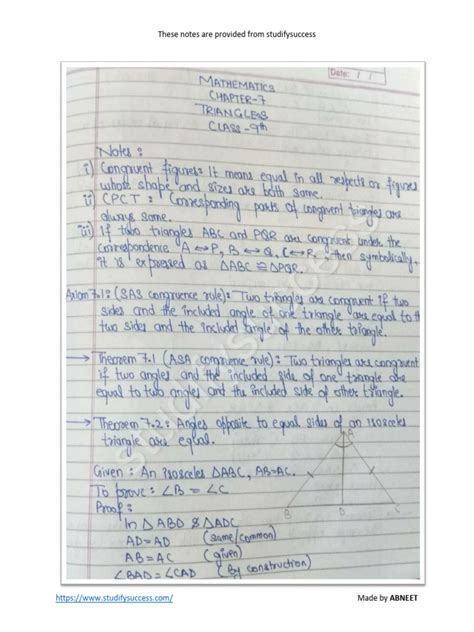 These notes are provided from studifysuccess
Date: / /
MATHEMATICS
CHAPTER-7
TRIANGLES
CLASS-9th
Notes:
i) Congruent figures: It means equal in all respects or figures
whose shape and sizes are both same.
ii) CPCT: Corresponding parts of congruent triangles are
always same.
iii) If two triangles ABC and PQR are congruent under the
correspondence A↔P, B↔Q, C↔R, then symbolically,
it is expressed as △ABC ≅ △PQR.
Axiom 7.1: (SAS congruence rule): Two triangles are congruent if two
sides and the included angle of one triangle are equal to the
two sides and the included angle of the other triangle.
→ Theorem 7.1 (ASA congruence rule): Two triangles are congruent
if two angles and the included side of one triangle are
equal to two angles and the included side of other triangle.
→ Theorem 7.2: Angles opposite to equal sides of an isosceles
triangle are equal.
Given: An isosceles △ABC, AB=AC.
To prove: ∠B = ∠C
Proof:
In △ABD & △ADC
AD=AD (same/common)
AB=AC (given)
∠BAD=∠CAD (By construction)
A
B D C
studifysuccess
https://www.studifysuccess.com/ Made by ABNEET